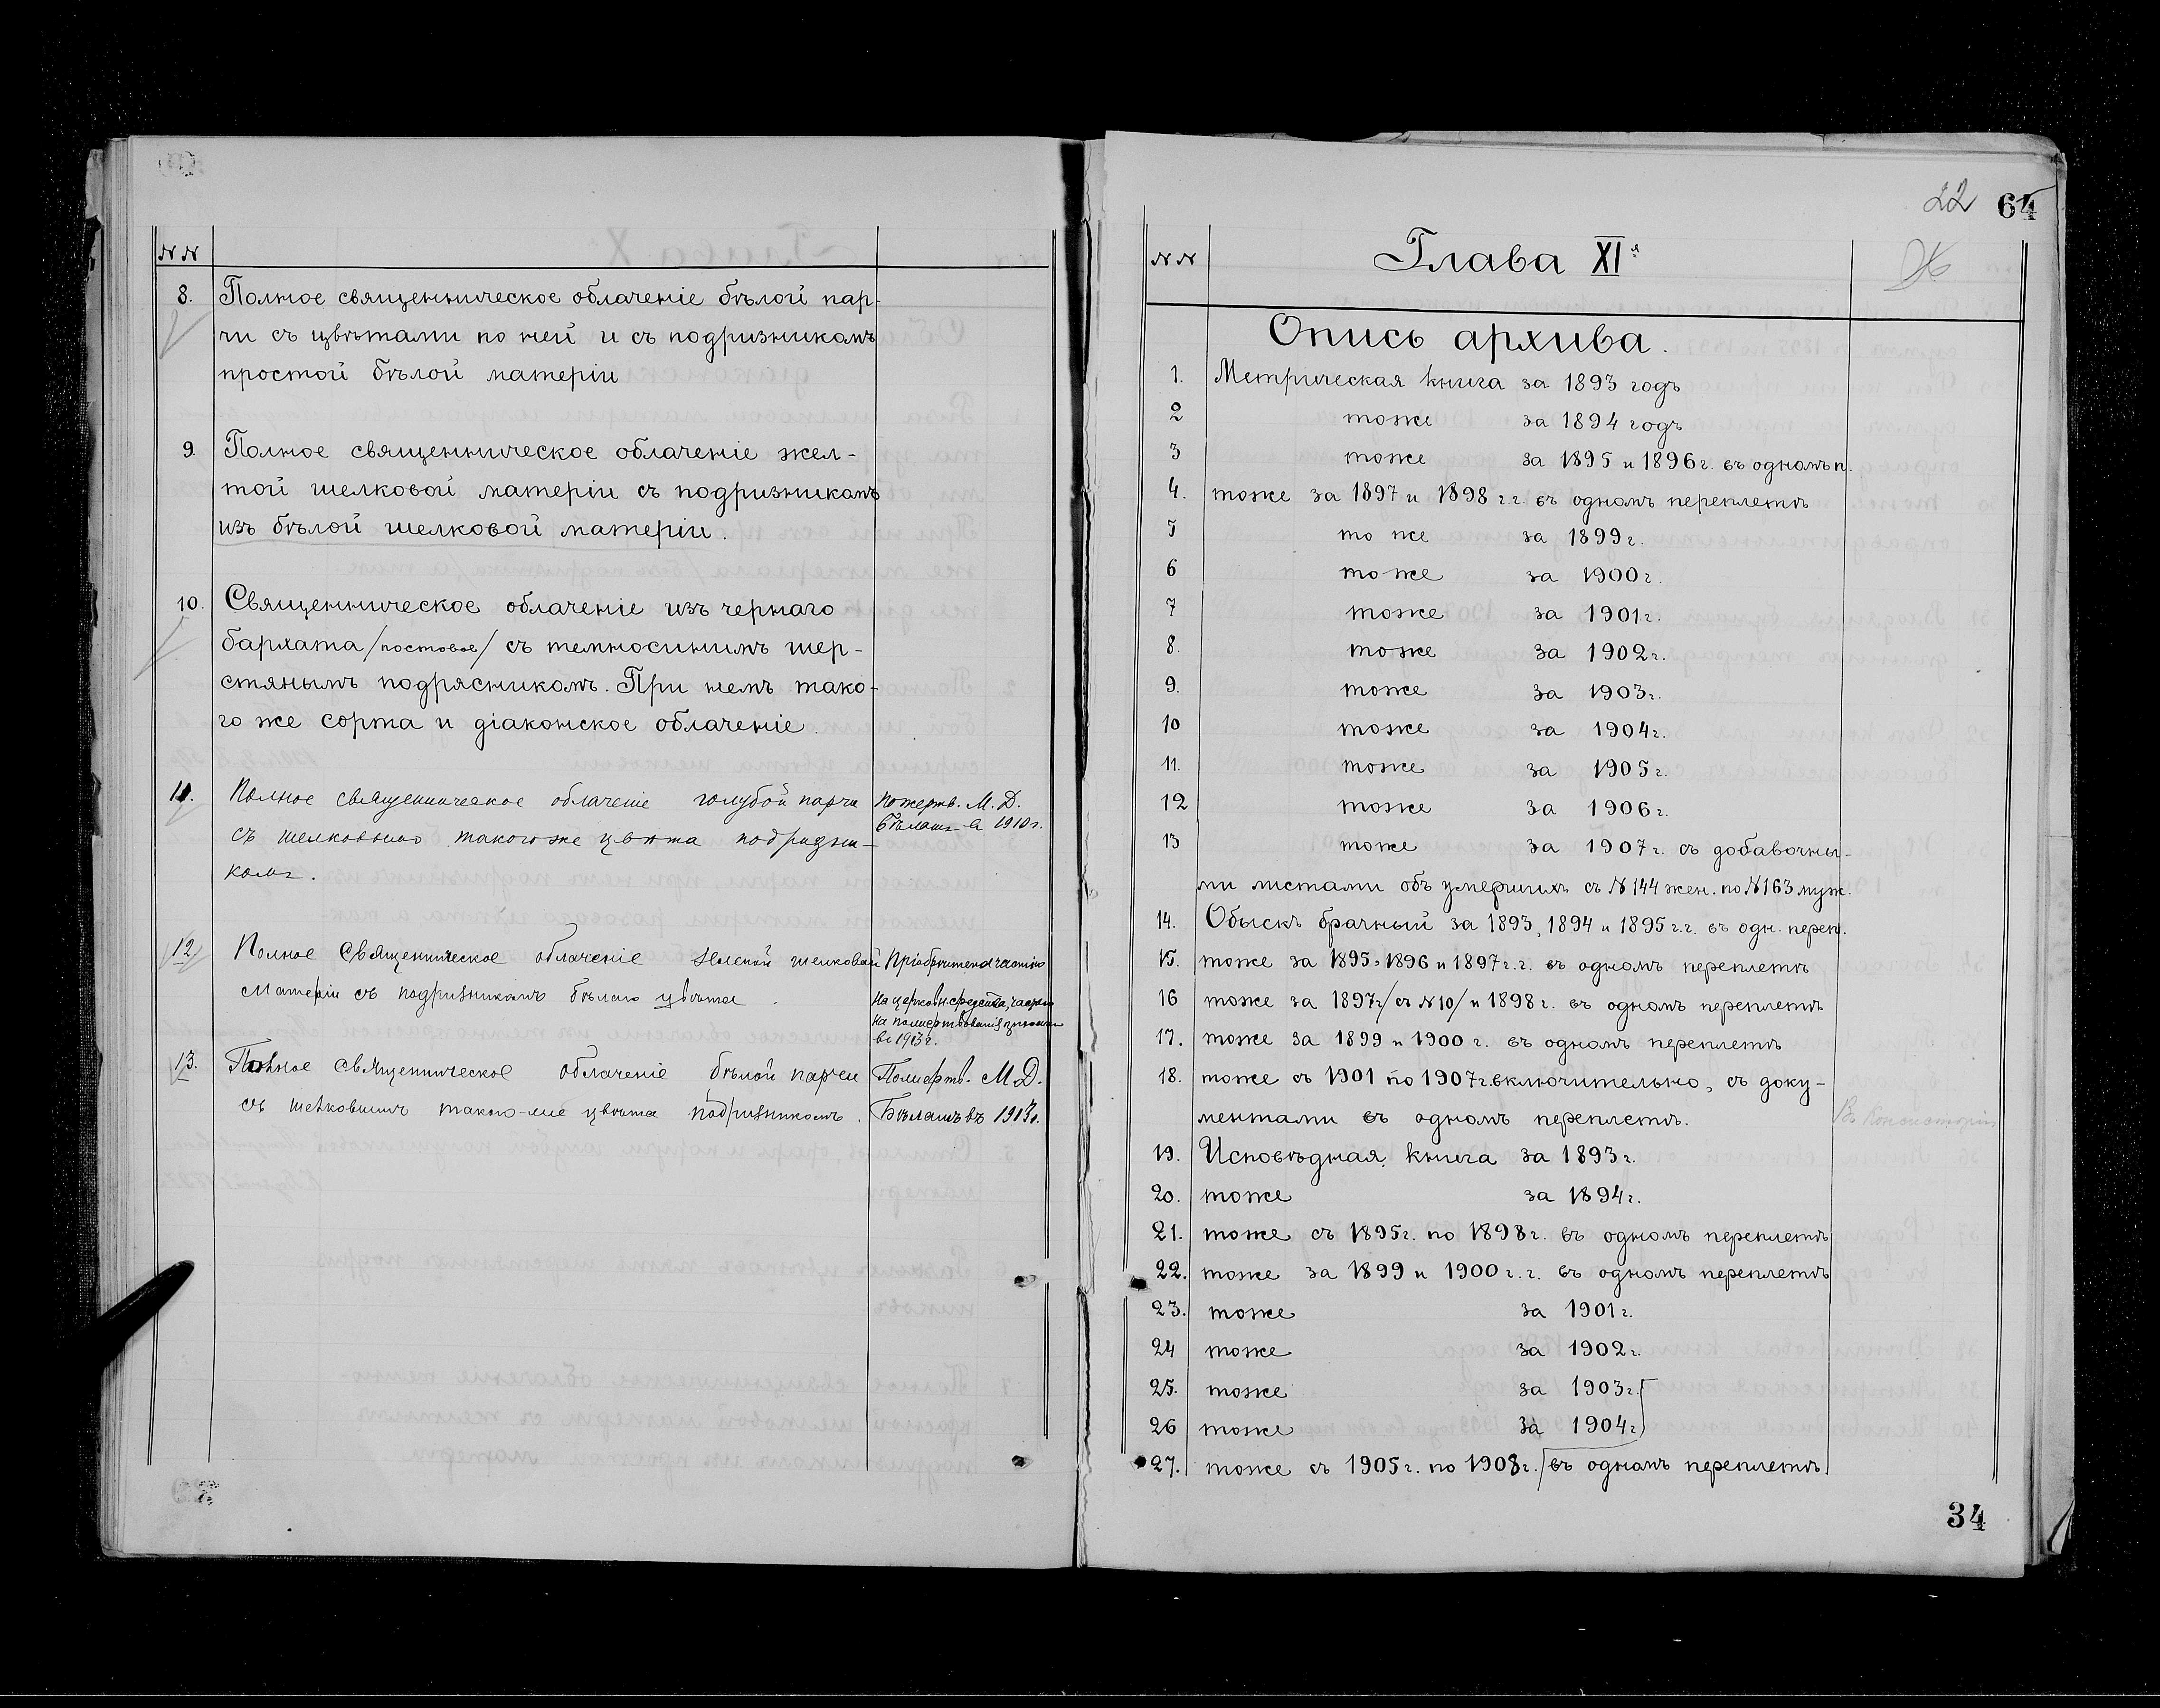 №№
8. Полное священническое облаченіе бѣлой пар-
чи съ цвѣтами по ней и съ подризникомъ
простой бѣлой матеріи
9. Полное священническое облаченіе жел-
той шелковой матеріи съ подризникомъ
изъ бѣлой шелковой матеріи.
10. Священническое облаченіе изъ чернаго
бархата /постовое/ съ темносинимъ шер-
стянымъ подрясникомъ. При немъ тако-
го же сорта и діаконское облаченіе.
11. Полное священническое облаченіе голубой парчи
съ шелковымъ такого же цвѣта подризни-
комъ.
Пожертв. М. Д.
Бѣлашъ въ 1910 г.
12. Полное Священническое облаченіе зеленой шелковой
матеріи съ подризникомъ бѣлаго цвѣта.
Пріобрѣтено частію
на церковн. средства, частію
на пожертвованія
въ 1913 г.
13. Полное священническое облаченіе бѣлой парчи
съ шелковымъ такого-же цвѣта подризникомъ.
Пожертв. М. Д.
Бѣлашъ въ 1913 г.
22 64
№№ Глава XIя
Опись архива.
1. Метрическая книга за 1893 годъ
2 тоже за 1894 годъ
3 тоже за 1895 и 1896 г. въ одномъ п.
4. тоже за 1897 и 1898 г.г. въ одномъ переплетѣ
5 то же за 1899 г.
6 то же за 1900 г.
7 тоже за 1901 г.
8. тоже за 1902 г.
9. тоже за 1903 г.
10 тоже за 1904 г.
11. тоже за 1905 г.
12 тоже за 1906 г.
13 тоже за 1907 г. съ добавочны-
ми листами объ умершихъ съ №144 жен. по №163 муж.
14. Обыскъ брачный за 1893, 1894 и 1895 г.г. въ одн. переп.
15. тоже за 1895, 1896 и 1897 г.г. въ одномъ переплетѣ
16 тоже за 1897 г /съ №10/ и 1898 г. въ одномъ переплетѣ
17. тоже за 1899 и 1900 г. въ одномъ переплетѣ
18. тоже съ 1901 по 1907 г. включительно, съ доку-
ментами въ одномъ переплетѣ.
Въ Консисторіи
19. Исповѣдная книга за 1893 г.
20. тоже за 1894 г.
21. тоже съ 1895 г. по 1898 г. въ одномъ переплетѣ
22. тоже за 1899 и 1900 г.г. въ одномъ переплетѣ
23. тоже за 1901 г.
24 тоже за 1902 г.
25. тоже за 1903 г.
26 тоже за 1904 г.
27. тоже съ 1905 г. по 1908 г. въ одномъ переплетѣ.
34